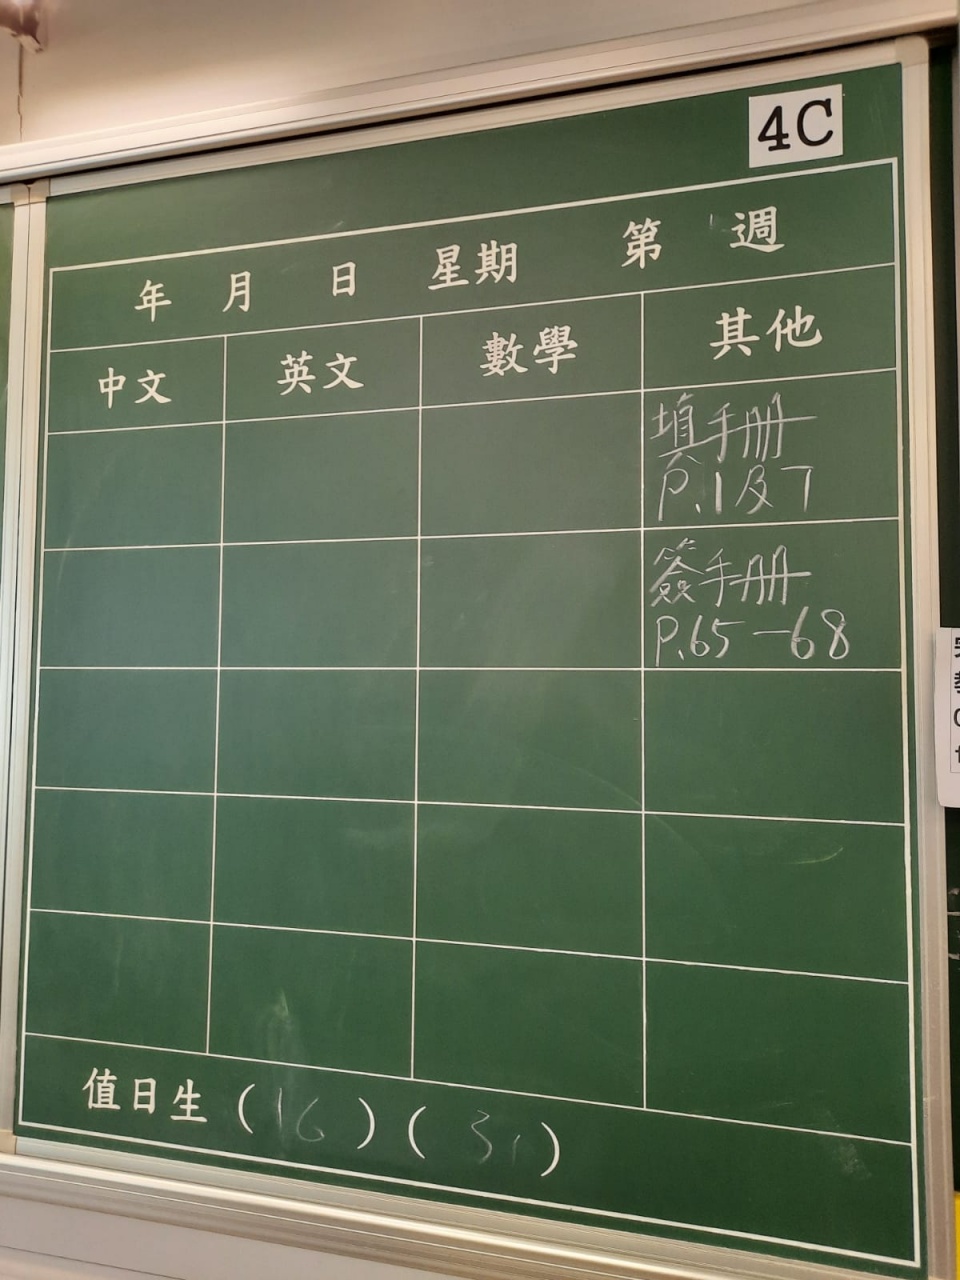 4C
年 月 日 星期 第 週
中文 英文 數學 其他
填手册
P.1及7
簽手册
P.65-68
值日生 (16) (31)